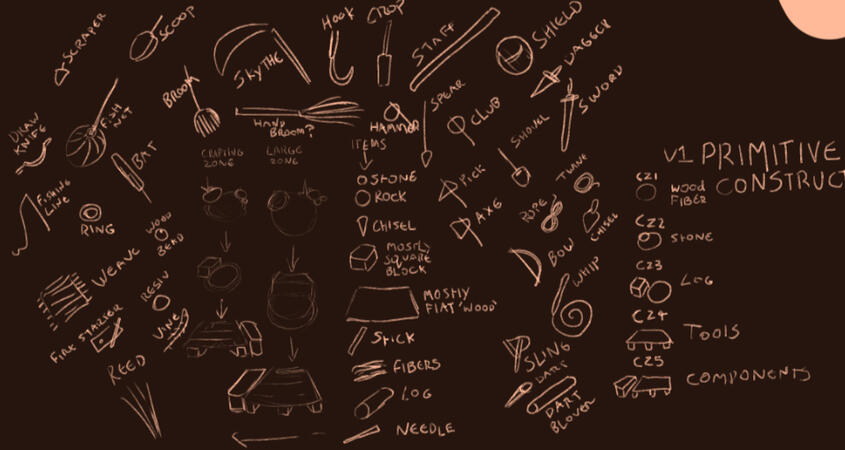 SCRAPER
SCOOP
SKYTHE
HOOK
CROP
STAFF
SHIELD
DAGGER
SWORD
BROOM
FISH
NET
HAND
BROOM?
HAMMER
SPEAR
CLUB
SHOVEL
DRAW
KNIFE
BAT
CRAFTING
ZONE
LARGE
ZONE
ITEMS
STONE
ROCK
CHISEL
MOSTLY
SQUARE
BLOCK
MOSTLY
FLAT 'WOOD'
STICK
FIBERS
LOG
NEEDLE
PICK
AXE
TWINE
ROPE
CHISEL
BOW
WHIP
SLING
DART
DART
BLOWER
FISHING
LINE
RING
WOOD
BEAD
WEAVE
RESIN
VINE
FIRE STARTER
REED
V1 PRIMITIVE
CONSTRUCT
CZ1
WOOD
FIBER
CZ2
STONE
CZ3
LOG
CZ4
TOOLS
CZ5
COMPONENTS